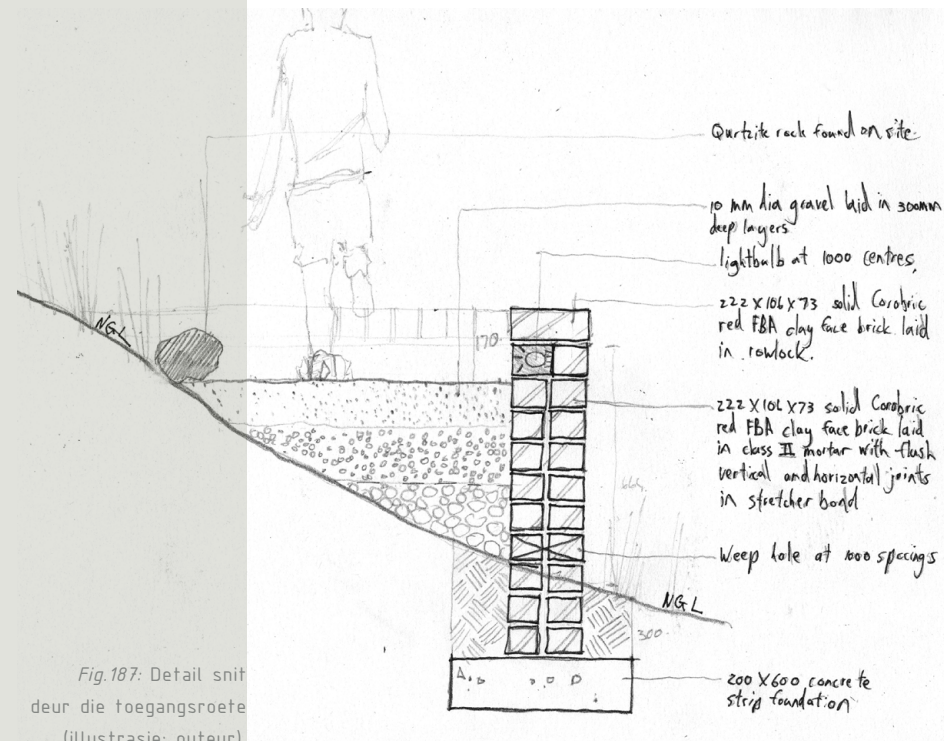 Qurtzite rock found on site
10 mm dia gravel laid in 300mm
deep layers
lightbulb at 1000 centres,
222 X 106 X 73 solid Corobric
red FBA clay face brick laid
in rowlock.
170
222 X 106 X 73 solid Corobric
red FBA clay face brick laid
in class II mortar with flush
vertical and horizontal joints
in stretcher bond
Weep hole at 1000 spacings
NGL
NGL
300
200 X 600 concrete
strip foundation
Fig.187: Detail snit
deur die toegangsroete
(illustrasie: outeur)